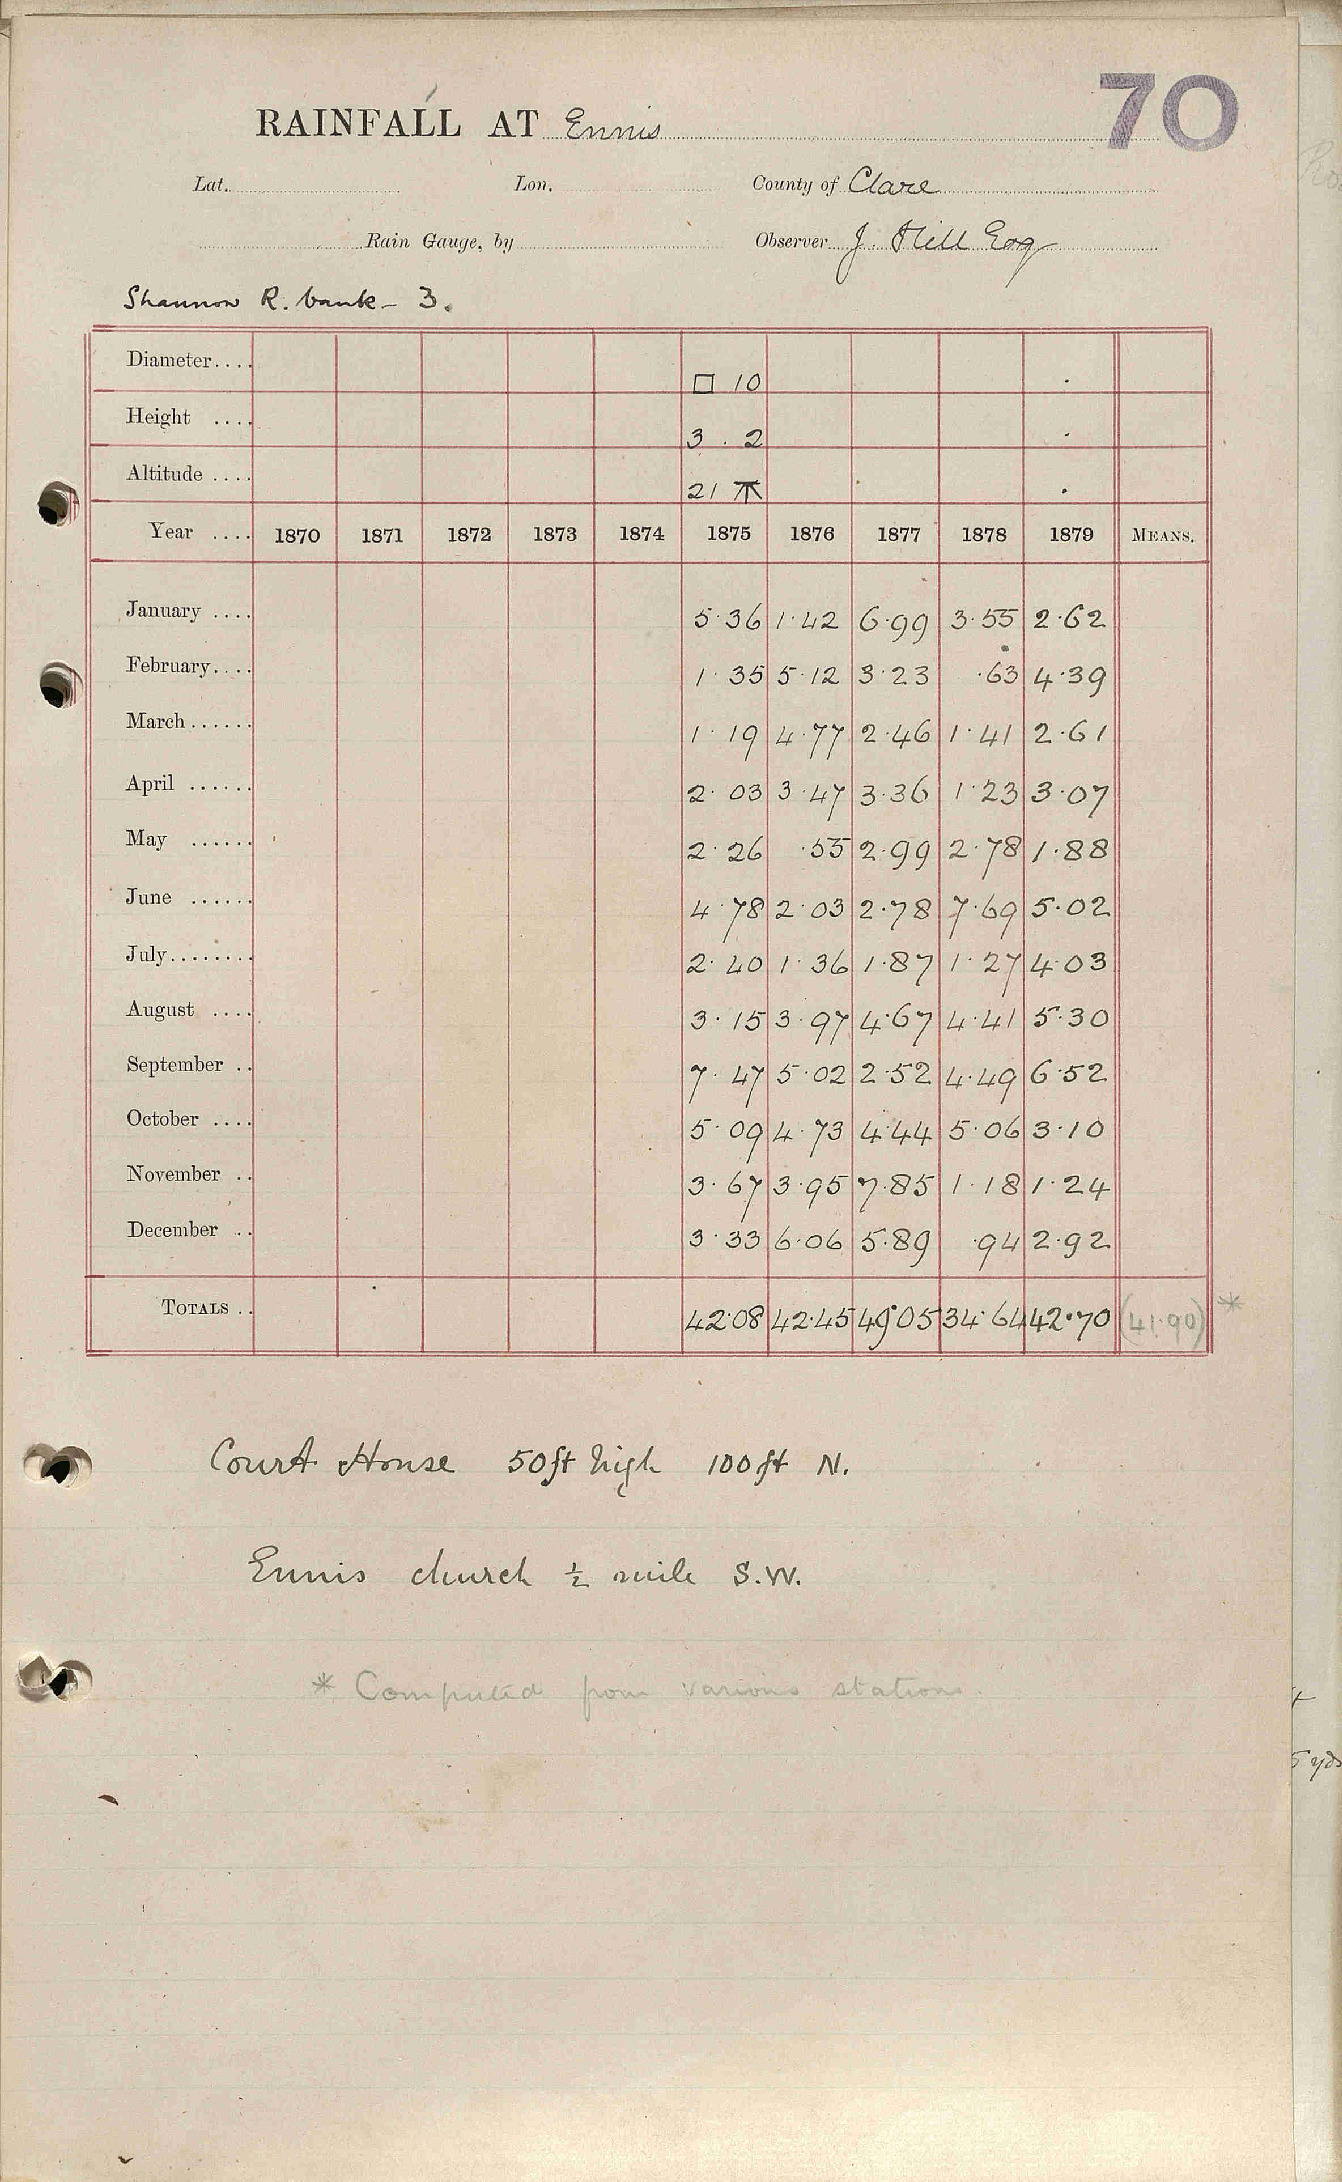 70
RAINFALL AT Ennis
Lat. Lon. County of Clare
Rain Gauge, by Observer J. Hill Esq
Shannon R. bank - 3.
Diameter.... □ 10
Height .... 3 . 2
Altitude .... 21
Year .... 1870 1871 1872 1873 1874 1875 1876 1877 1878 1879 MEANS.
January .... 5·36 1·42 6·99 3·55 2·62
February.... 1·35 5·12 3·23 ·63 4·39
March...... 1·19 4·77 2·46 1·41 2·61
April ...... 2·03 3·47 3·36 1·23 3·07
May ...... 2·26 ·55 2·99 2·78 1·88
June ...... 4·78 2·03 2·78 7·69 5·02
July........ 2·40 1·36 1·87 1·27 4·03
August .... 3·15 3·97 4·67 4·41 5·30
September .. 7·47 5·02 2·52 4·49 6·52
October .... 5·09 4·73 4·44 5·06 3·10
November .. 3·67 3·95 7·85 1·18 1·24
December .. 3·33 6·06 5·89 ·94 2·92
TOTALS .. 42·08 42·45 49·05 34·64 42·70 (41·90) *
Court House 50ft high 100ft N.
Ennis church ½ mile S.W.
* Computed from various stations.
5 yds